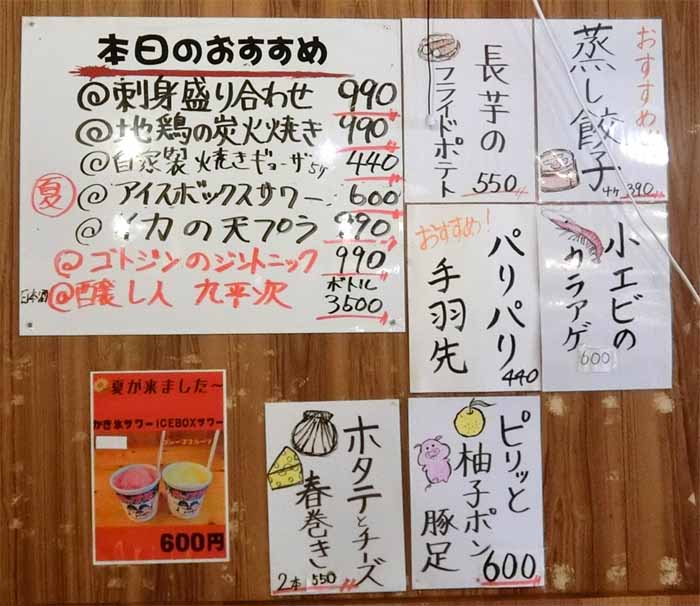 本日のおすすめ
@刺身盛り合わせ 990
@地鶏の炭火焼き 990
@自家製焼きギョーザ5ケ 440
夏 @アイスボックスサワー 600
@イカの天プラ 990
@ゴトジンのジントニック 990
日本酒 @醸し人 九平次 ボトル 3500
長芋の
フライドポテト
550
おすすめ!!
蒸し餃子
4ケ 390
おすすめ!
パリパリ
手羽先
440
小エビの
カラアゲ
600
夏が来ました~
かき氷サワーICEBOXサワー
グレープフルーツ
600円
ホタテとチーズ
春巻き
2本 550
ピリッと
柚子ポン
豚足
600